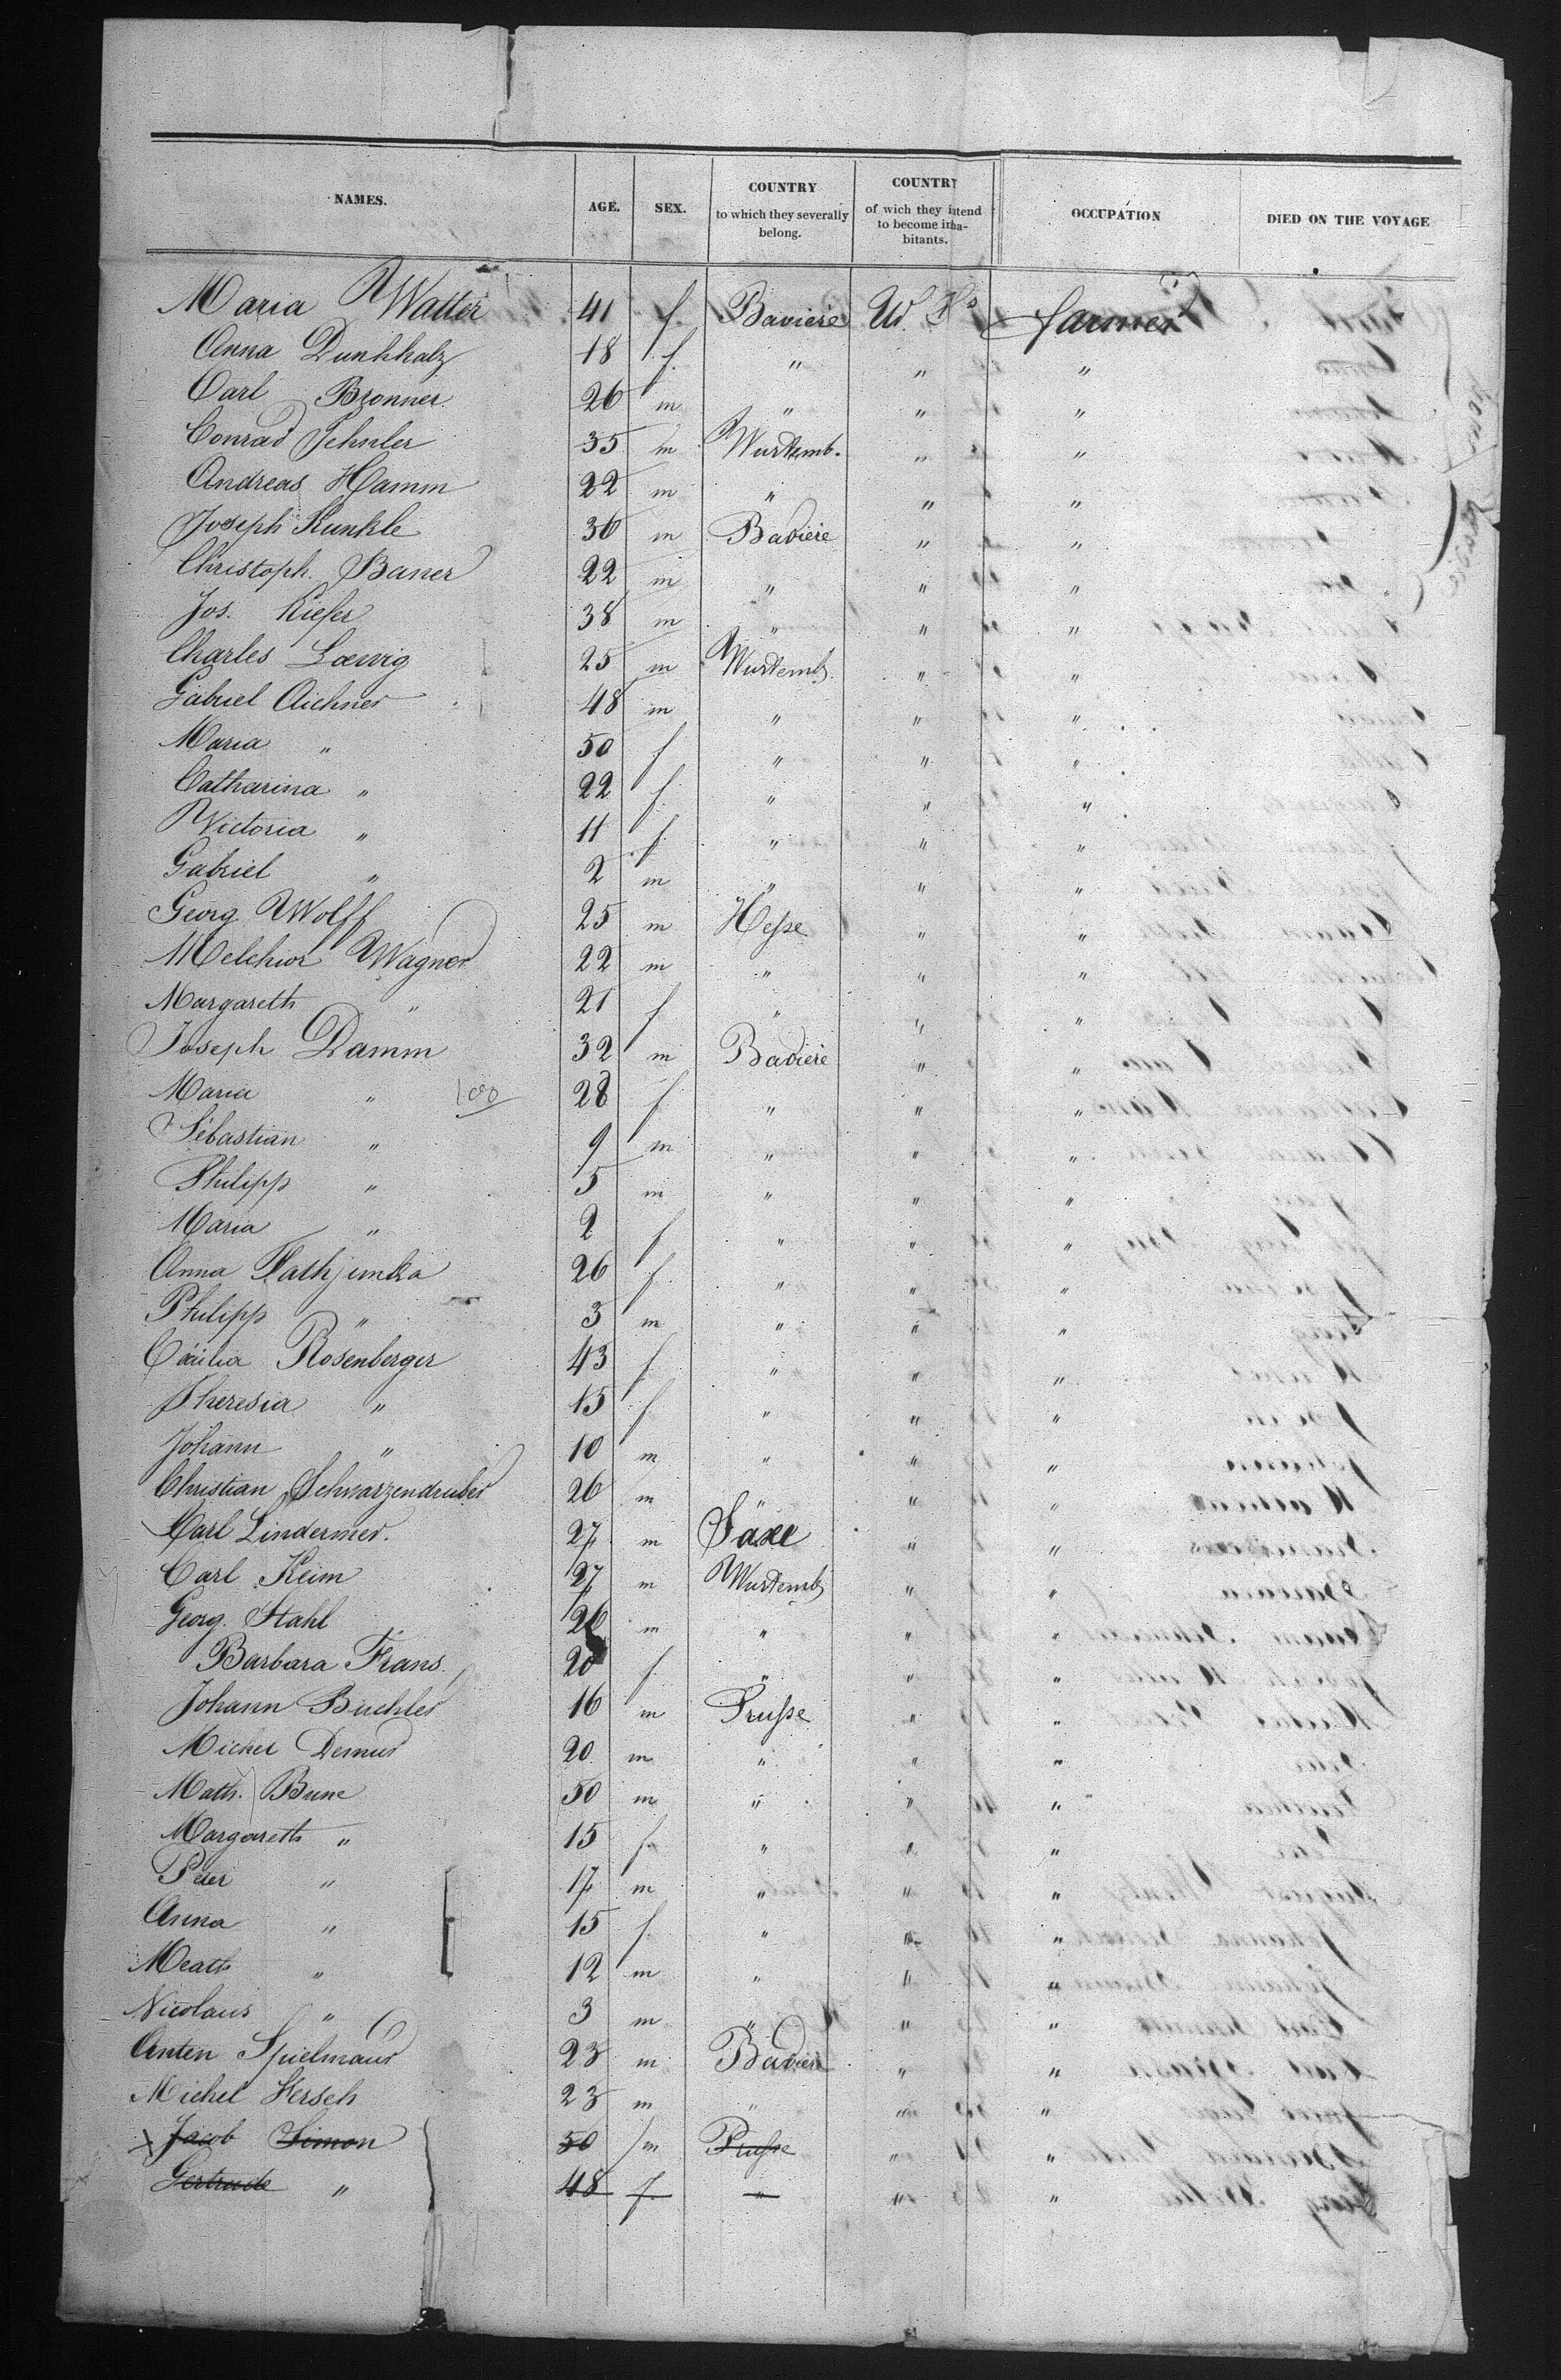 NAMES. AGE. SEX. COUNTRY to which they severally belong. COUNTRY of wich they intend to become inhabitants. OCCUPATION DIED ON THE VOYAGE
Maria Walter 41 f. Baviere U. Ss farmer
Anna Dunkhalz 18 f. " " "
Carl Bronner 26 m " " "
Conrad Schuler 35 m Wurtemb. " "
Andreas Hamm 22 m " " "
Joseph Kunkle 36 m Baviere " "
Christoph. Baner 22 m " " "
Jos. Kiefer 38 m " " "
Charles Lœwig 25 m Wurtemb. " "
Gabriel Aichner 48 m " " "
Maria " 50 f " " "
Catharina " 22 f " " "
Victoria " 11 f. " " "
Gabriel " 2 m " " "
Georg Wolff 25 m Hesse " "
Melchior Wagner 22 m " " "
Margareth " 21 f " " "
Joseph Damm 32 m Baviere " "
Maria " 100 28 f " " "
Sebastian " 9 m " " "
Philipp " 5 m " " "
Maria " 2 f " " "
Anna 26 f. " " "
Philipp " 3 m " " "
Cäcilia Rosenberger 43 f " " "
Theresia " 15 f " " "
Johann " 10 m " " "
Christian Schwarzendruber 26 m " " "
Karl Lindermer. 27 m Saxe " "
Carl Keim 27 m Wurtemb " "
Georg Stahl 26 m " " "
Barbara Frans. 20 f. " " "
Johann Buchler 16 m Prusse " "
Michel Demur 20 m " " "
Math. Bune 50 m " " "
Margareth " 15 f. " " "
Peter " 17 m " " "
Anna " 15 f. " " "
Meath " 12 m " " "
Nicolaus " 3 m " " "
Anten Spielmann 23 m Baviere " "
Michel Hersch 23 m " " "
x Jacob Simon 50 m Prusse " "
Gertrude " 48 f. " " "